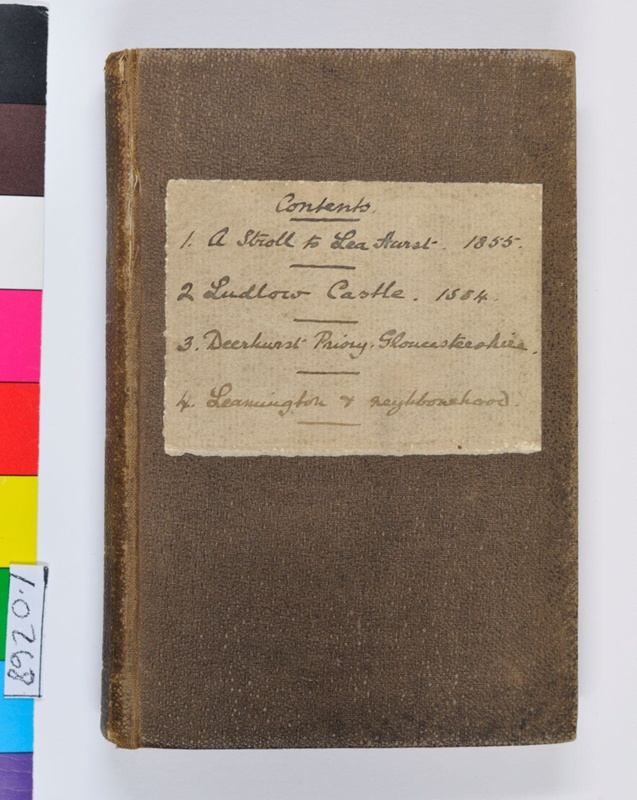 Contents.
1. A Stroll to Lea Hurst. 1855.
2 Ludlow Castle. 1884.
3. Deerhurst Priory. Gloucestershire.
4. Leamington & neighbourhood.
1.0268